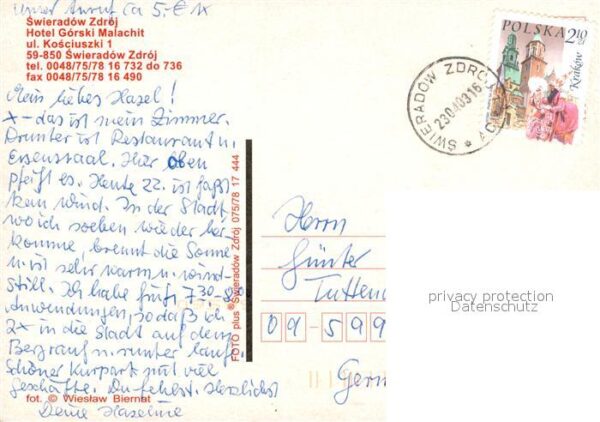 Unser Anruf ca 5.- € 1x
Świeradów Zdrój
Hotel Górski Malachit
ul. Kościuszki 1
59-850 Świeradów Zdrój
tel. 0048/75/78 16 732 do 736
fax 0048/75/78 16 490
Mein liebes Hasel!
x - das ist mein Zimmer.
Drunter ist Restaurant u.
Essenssaal. Hier oben
pfeift es. Heute 22. ist fast
kein Wind. In der Stadt
wo ich soeben wieder her
komme, brennt die Sonne
u. ist sehr warm u. wind-
still. Ich habe früh 7³⁰-
Anwendungen, sodaß ich
2x in die Stadt auf dem
Berg rauf u. runter laufe.
Schöner Kurpark mit viel
Geschäfte. Du fehlst. Herzlichst
fot. © Wiesław Biernat
Deine Haselme
FOTO plus ® Świeradów Zdrój 075/78 17 444
POLSKA 2,10 zł
Kraków
ŚWIERADÓW ZDRÓJ
230403 16
Herrn
Günter
09-599
privacy protection
Datenschutz